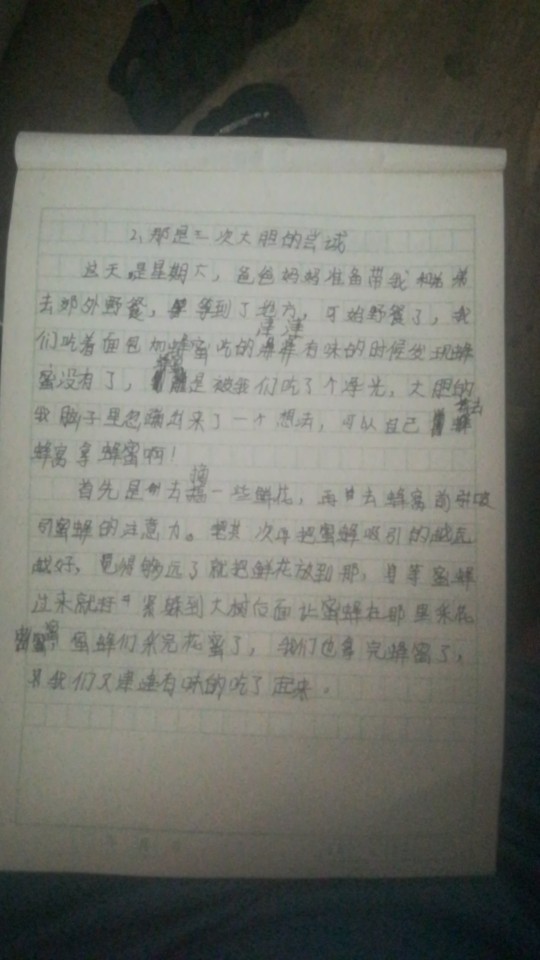 2、那是一次大胆的尝试
这天是星期六，爸爸妈妈准备带我和
去郊外野餐，等到了地方，可始野餐了，我
们吃着面包加蜂蜜吃的津津有味的时候发现蜂
蜜没有了，是被我们吃了个净光，大胆的
我脑子里忽蹦出来了一个想法，可以自己去
蜂窝拿蜂蜜啊！
首先是去摘一些鲜花，再去蜂窝前引
蜜蜂的注意力。其次再把蜜蜂吸引的越远
越好，觉得够远了就把鲜花放到那，等蜜蜂
过来就赶紧躲到大树后面让蜜蜂在那里采花
蜜，蜜蜂们采完花蜜了，我们也拿完蜂蜜了，
我们又津津有味的吃了起来。